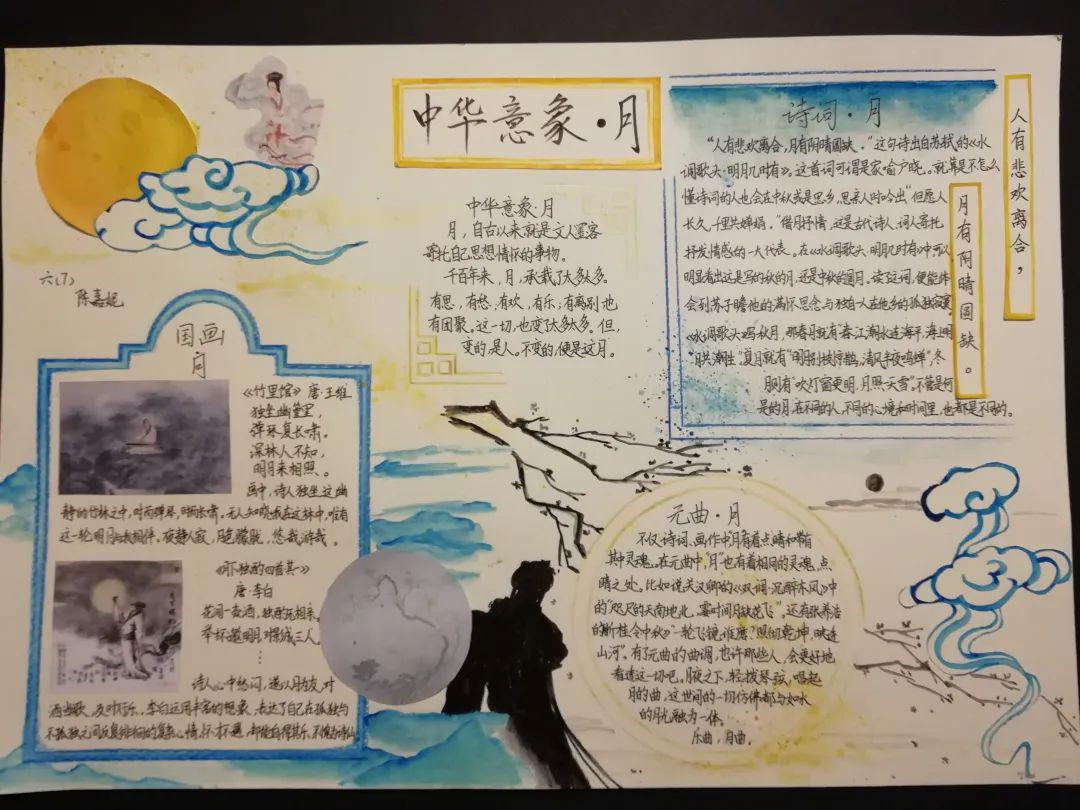 中华意象·月
六(7)
陈嘉妮
中华意象·月
月，自古以来就是文人墨客
寄托自己思想情怀的事物。
千百年来，月，承载了太多太多。
有思，有愁，有欢，有乐；有离别，也
有团聚。这一切，也变了太多太多。但，
变的，是人。不变的，便是这月。
诗词·月
“人有悲欢离合，月有阴晴圆缺。”这句诗出自苏轼的《水
调歌头·明月几时有》。这首词可谓是家喻户晓。就算是不怎么
懂诗词的人也会在中秋或是思乡，思亲人时吟出“但愿人
长久，千里共婵娟。”借月抒情，这是古代诗人、词人寄托
抒发情感的一大代表。在《水调歌头·明月几时有》中，可以
明显看出这是写的秋的月，还是中秋的圆月。读这词，便能体
会到苏子瞻他的满怀思念与独自一人在他乡的孤独寂寞
《水调歌头》写秋月，那春月就有“春江潮水连海平，海上明
月共潮生”夏月就有“明月别枝惊鹊，清风半夜鸣蝉”，冬
月则有“吹灯窗更明，月照一天雪”。不管是何
是的月，在不同的人，不同的心境和时间里，也都是不同的。
人有悲欢离合，
月有阴晴圆缺。
国画
月
《竹里馆》唐·王维
独坐幽篁里，
弹琴复长啸。
深林人不知，
明月来相照。
画中，诗人独坐这幽
静的竹林之中，时而弹琴，时而长啸。无人知晓我在这林中，唯有
这一轮明月与我相伴。夜静人寂，月色朦胧，悠哉游哉。
《 独酌四首其一》
唐·李白
花间一壶酒，独酌无相亲。
举杯邀明月，对影成三人
…
诗人心中愁闷，遂以月为友，对
酒当歌，及时行乐。李白运用丰富的想象，表达了自己在孤独与
不孤独之间反复徘徊的复杂心情。怀才不遇，却能自得其乐，不愧为诗仙
元曲·月
不仅诗词、画作中“月”有着点睛和带有
其中灵魂。在元曲中“月”也有着相同的灵魂、点
睛之处。比如说关汉卿的《双调·沉醉东风》中
的“咫尺的天南地北，霎时间月缺花飞”，还有张养浩
的《折桂令·中秋》“一轮飞镜谁磨？照彻乾坤，映透
山河”。有了元曲的曲调，也许那些人，会更好地
看透这一切吧。月夜之下，轻拨琴弦，唱起
月的曲，这世间的一切仿佛都与如水
的月光融为一体。
乐曲，月曲。